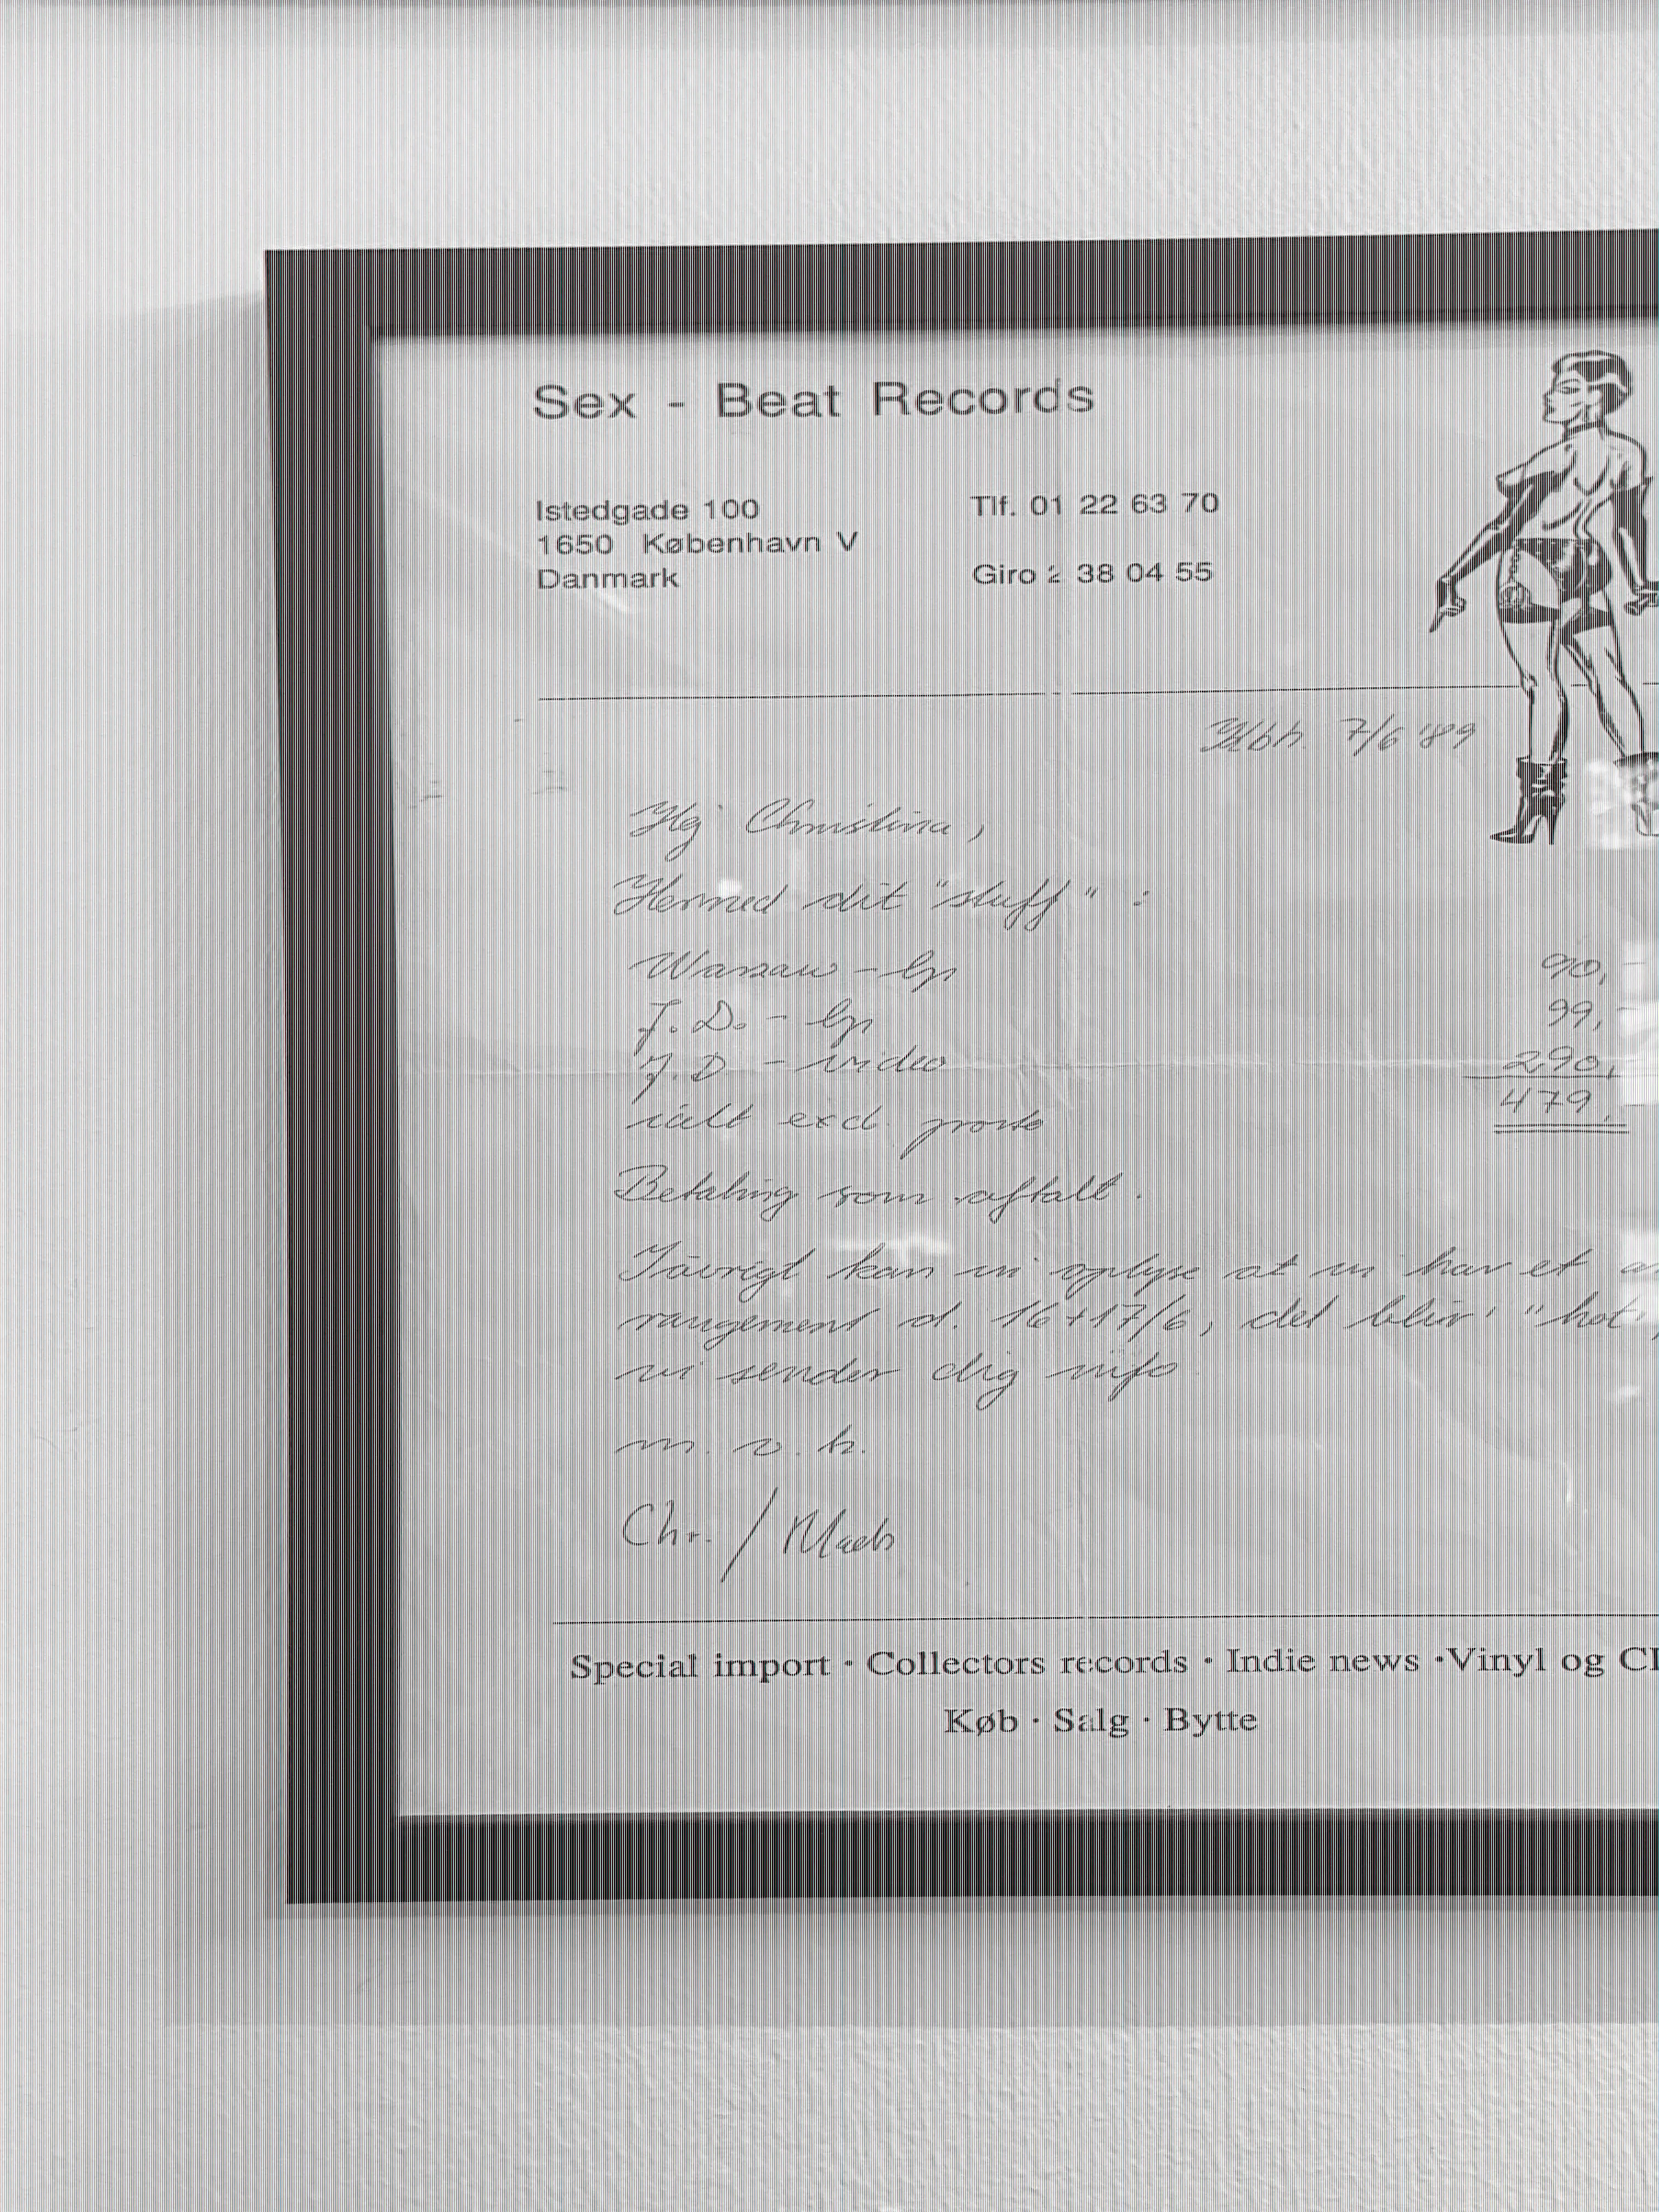 Sex - Beat Records
Istedgade 100
1650 København V
Danmark
Tlf. 01 22 63 70
Giro 2 38 04 55
Kbh. 7/6 '89
Hej Christina,
Hermed dit "stuff" :
Warzaw - lp 90,-
J.D. - lp 99,-
J.D - video 290,
ialt excl. porto 479,-
Betaling som aftalt.
Iøvrigt kan vi oplyse at vi har et
rangement d. 16+17/6, det bliver "hot",
vi sender dig info
m. v. h.
Chr. / Mads
Special import · Collectors records · Indie news · Vinyl og
Køb · Salg · Bytte